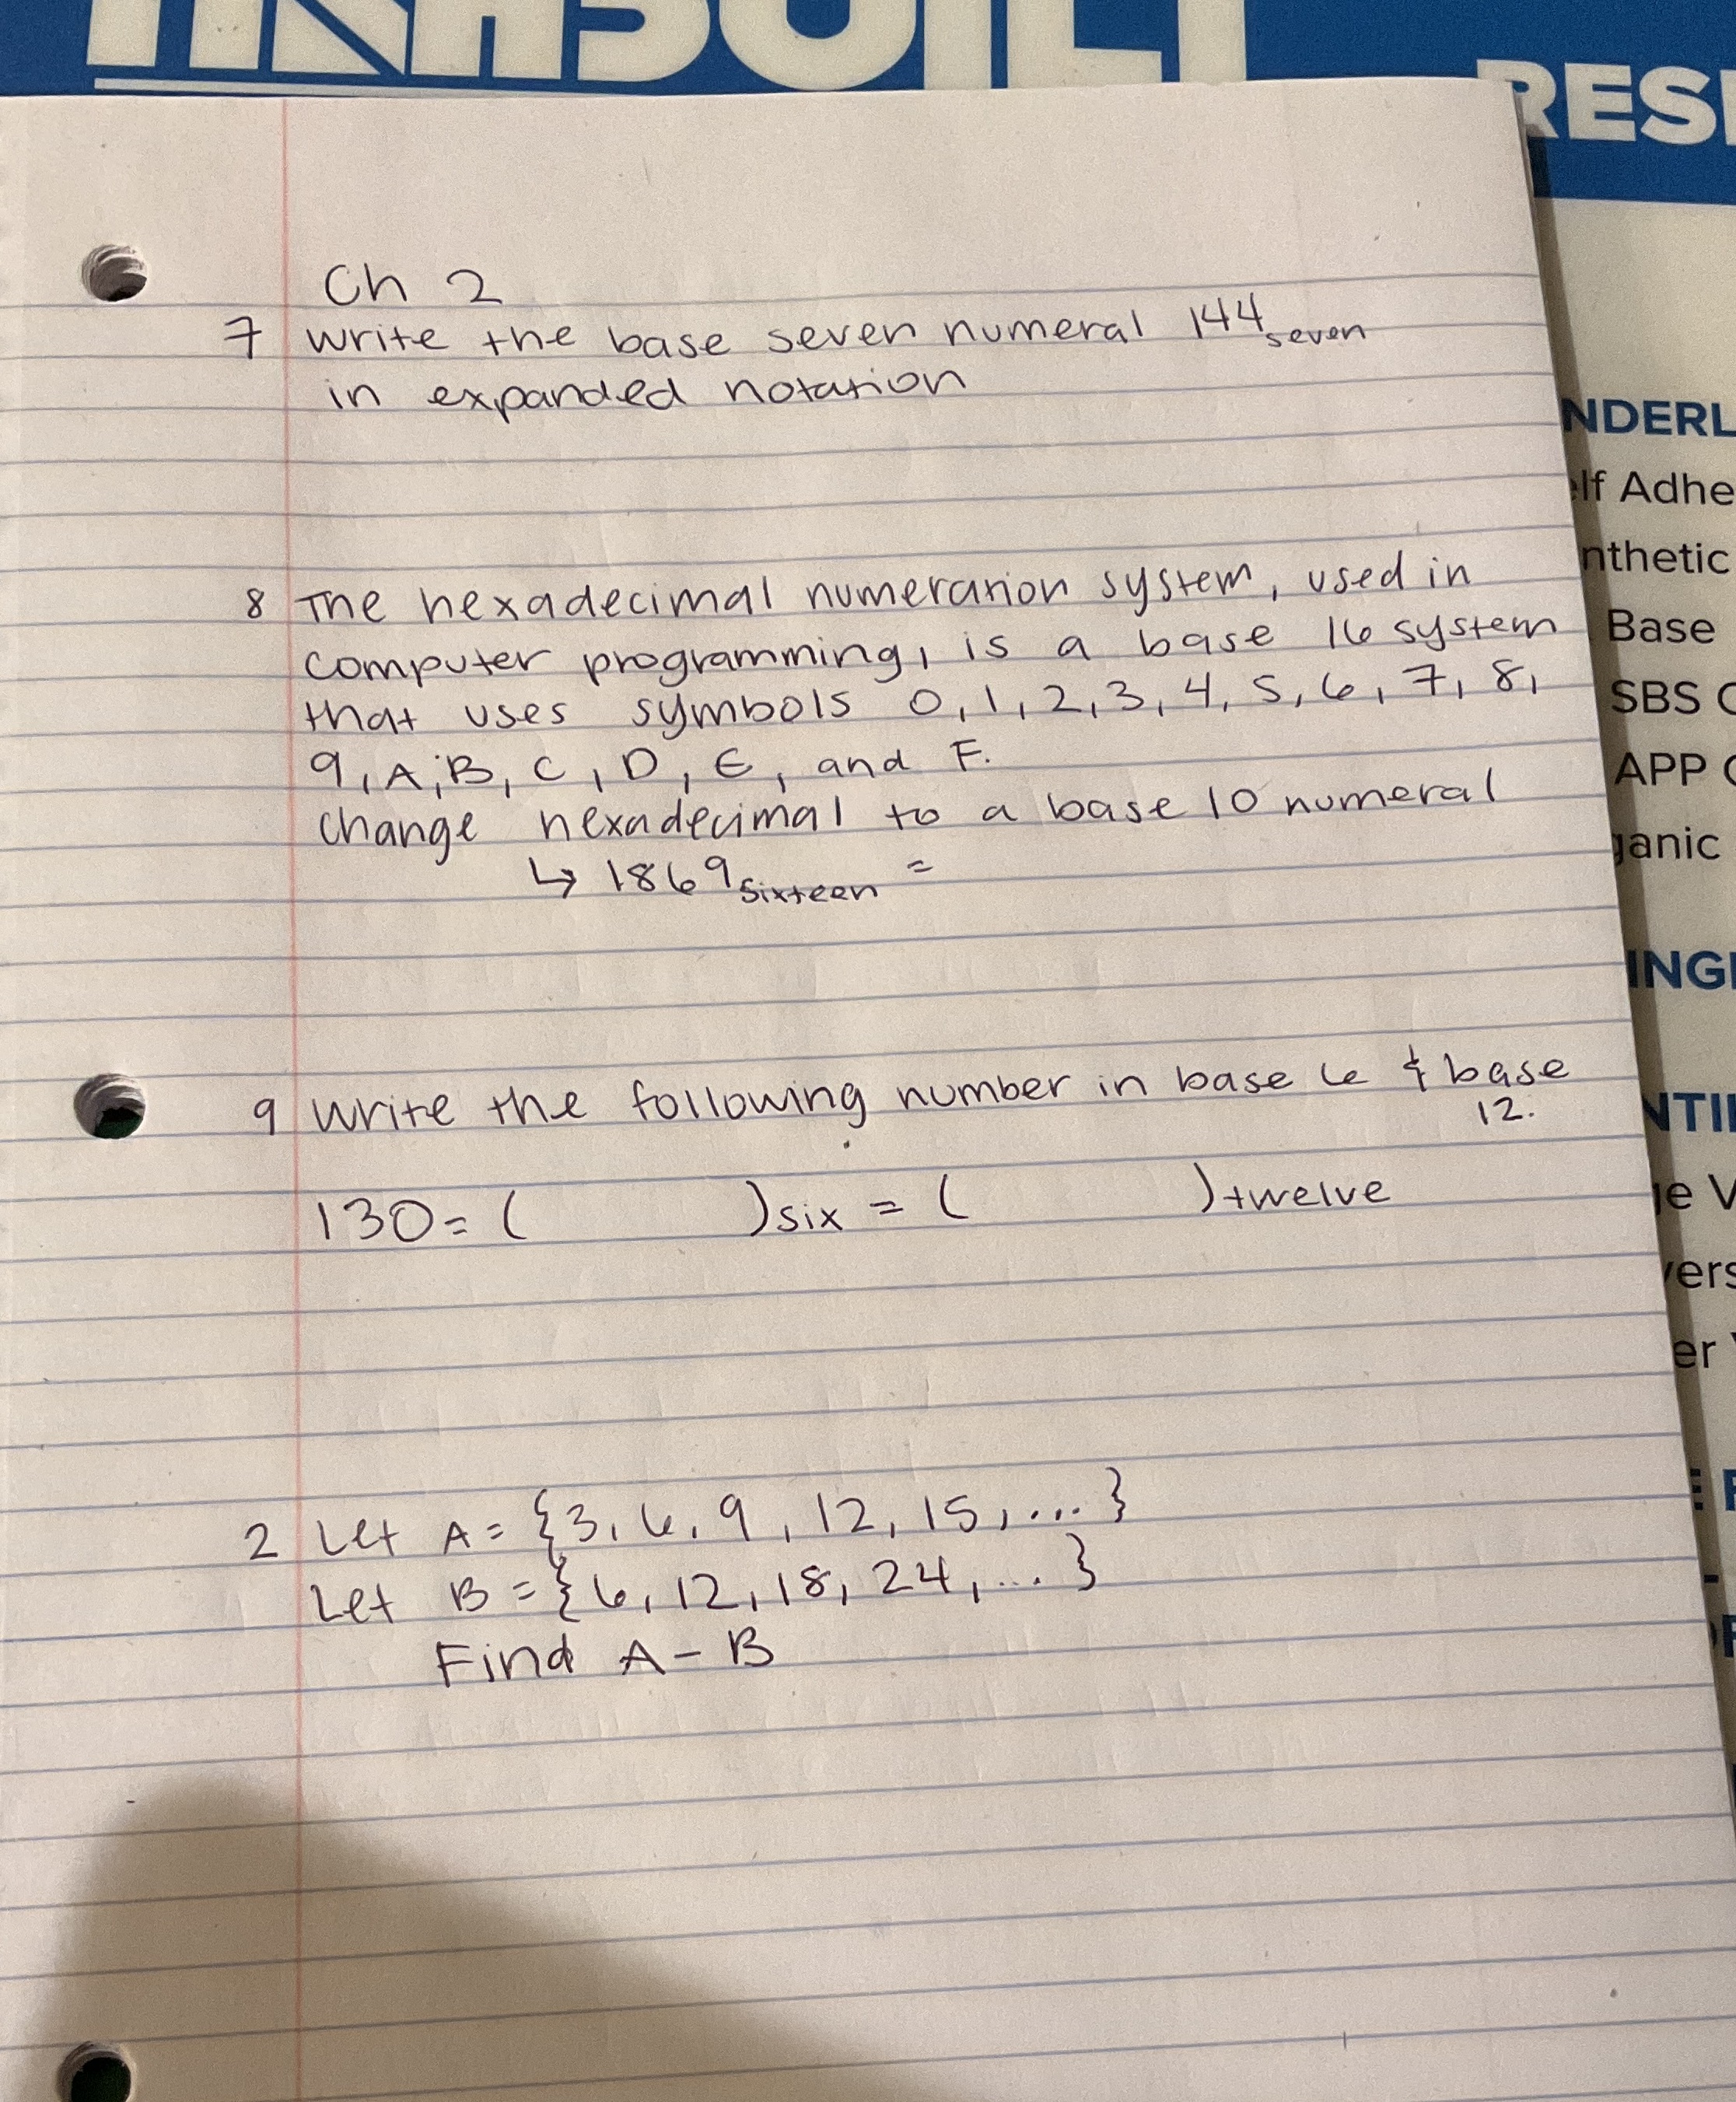 RES
NDERL
elf Adhe
nthetic
Base
SBS
APP
ganic
INGL
NTI
ge V
vers
er
Ch 2
7 write the base seven numeral 144seven
in expanded notation
8 The hexadecimal numeration system, used in
computer programming, is a base 16 system
that uses symbols 0, 1, 2, 3, 4, 5, 6, 7, 8,
9, A, B, C, D, E, and F.
change hexadecimal to a base 10 numeral
↳ 1869sixteen =
9 Write the following number in base 6 & base
12.
130 = ( )six = ( )twelve
2 Let A = {3, 6, 9, 12, 15, ... }
Let B = {6, 12, 18, 24, ... }
Find A - B